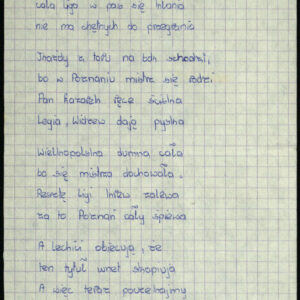 cała liga w pas się kłania
nie ma chętnych do przegrania
z toru na bok schodzi,
bo w Poznaniu mistrz się rodzi
Pan każdzich ręce
Legia, Widzew dają pyska
Wielkopolska dumna cała
bo się mistrza dochowała.
Resztę ligi zalewa
za to Poznań cały śpiewa
A Lechici obiecują, że
ten tytuł wnet skopiują
A więc teraz poczekajmy